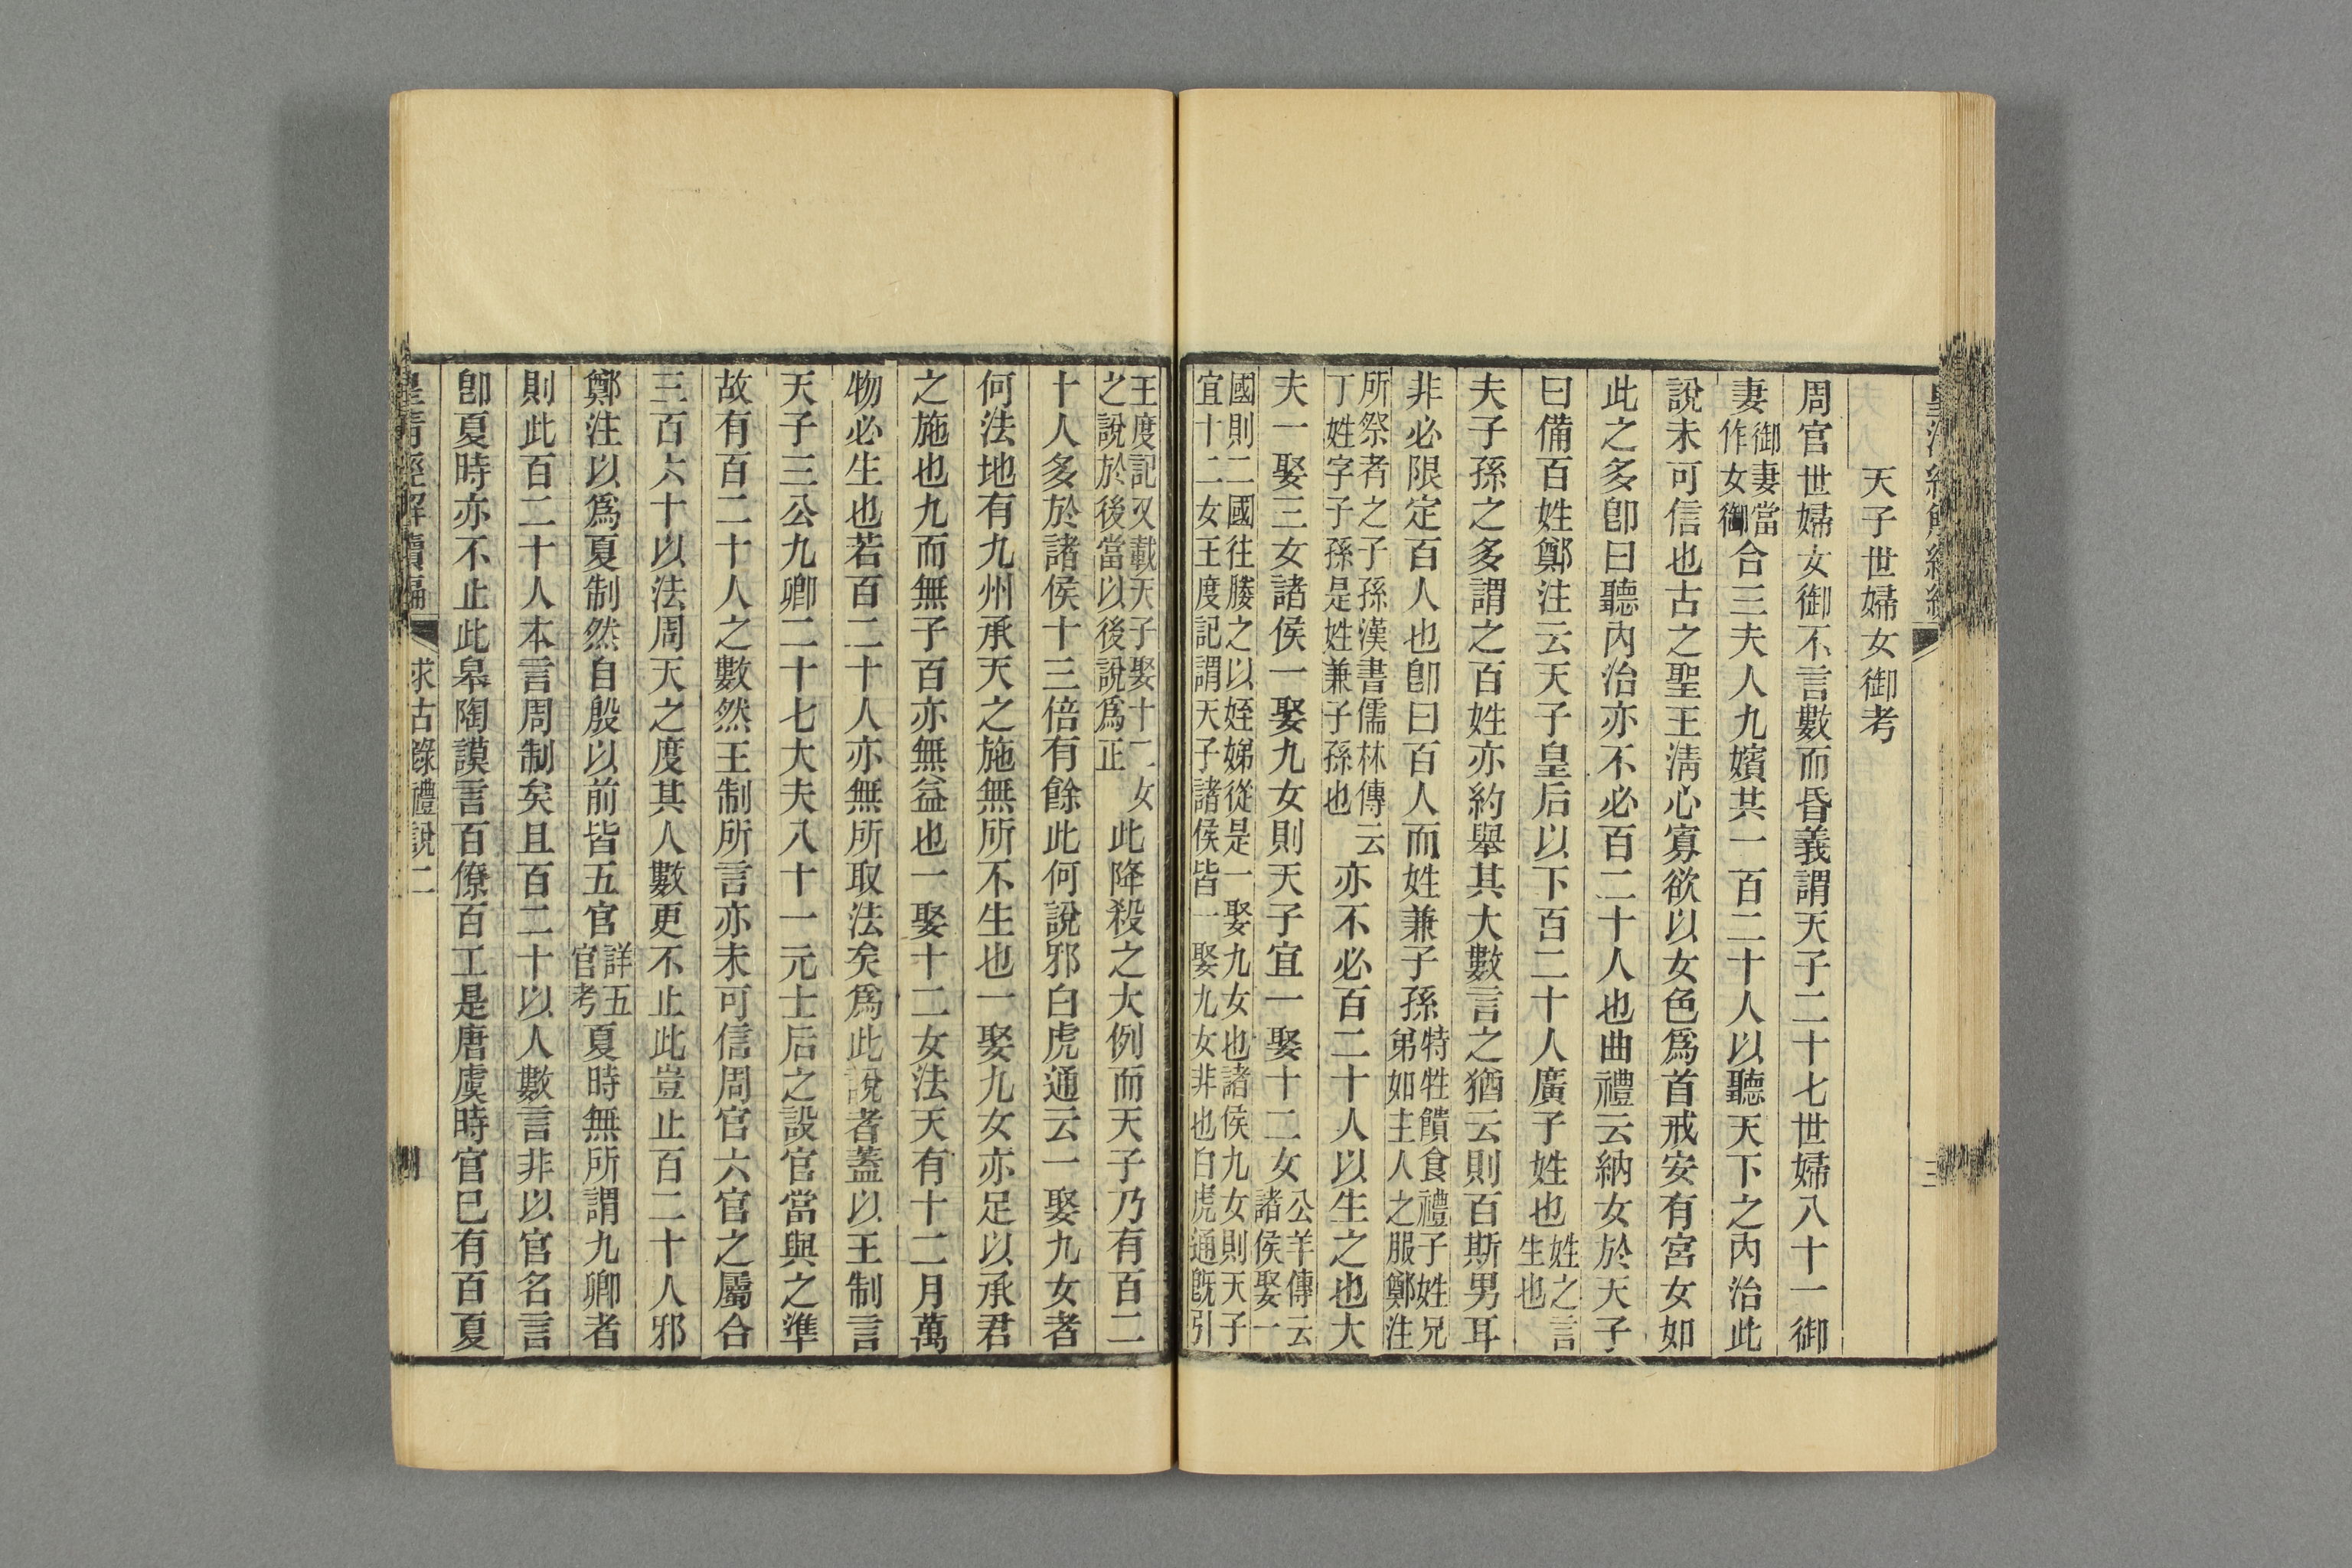 天子世婦女御考
周官世婦女御不言數而昏義謂天子二十七世婦八十一御
妻御妻當作女御合三夫人九嬪共一百二十人以聽天下之內治此
說未可信也古之聖王淸心寡欲以女色爲首戒安有宮女如
此之多卽曰聽內治亦不必百二十人也曲禮云納女於天子
曰備百姓鄭注云天子皇后以下百二十人廣子姓也姓之言生也
夫子孫之多謂之百姓亦約舉其大數言之猶云則百斯男耳
非必限定百人也卽曰百人而姓兼子孫特牲饋食禮子姓兄弟如主人之服鄭注
所祭者之子孫漢書儒林傳云丁姓字子孫是姓兼子孫也亦不必百二十人以生之也大
夫一娶三女諸侯一娶九女則天子宜一娶十二女公羊傳云諸侯娶一
國則二國往媵之以姪娣從是一娶九女也諸侯九女則天子宜十二女王度記謂天子諸侯皆一娶九女非也白虎通旣引
王度記又載天子娶十二女之說於後當以後說爲正此降殺之大例而天子乃有百二
十人多於諸侯十三倍有餘此何說邪白虎通云一娶九女者
何法地有九州承天之施無所不生也一娶九女亦足以承君
之施也九而無子百亦無益也一娶十二女法天有十二月萬
物必生也若百二十人亦無所取法矣爲此說者蓋以王制言
天子三公九卿二十七大夫八十一元士后之設官當與之準
故有百二十人之數然王制所言亦未可信周官六官之屬合
三百六十以法周天之度其人數更不止此豈止百二十人邪
鄭注以爲夏制然自殷以前皆五官詳五官考夏時無所謂九卿者
則此百二十人本言周制矣且百二十以人數言非以官名言
卽夏時亦不止此皋陶謨言百僚百工是唐虞時官已有百夏
皇清經解續編
求古錄禮說二
三